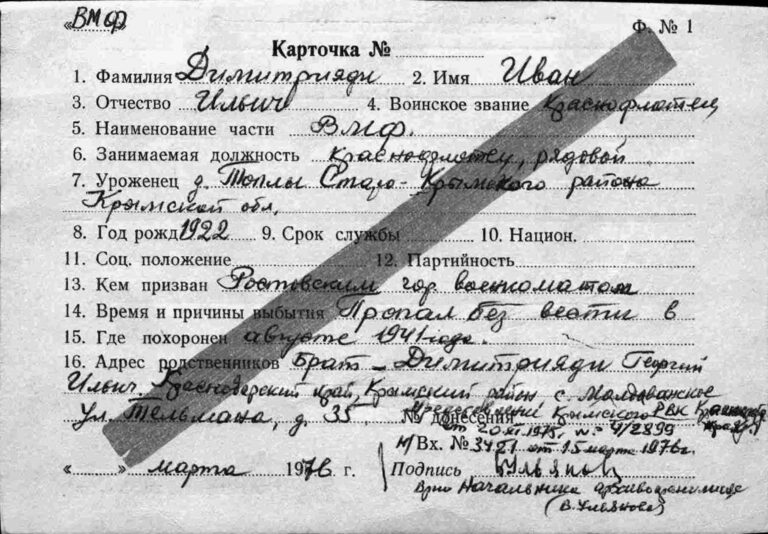 «ВМФ»
Ф. № 1
Карточка №
1. Фамилия Димитрияди 2. Имя Иван
3. Отчество Ильич 4. Воинское звание Краснофлотец
5. Наименование части ВМФ.
6. Занимаемая должность краснофлотец, рядовой
7. Уроженец д. Топлы Старо-Крымского района
Крымской обл.
8. Год рожд 1922 9. Срок службы 10. Национ.
11. Соц. положение 12. Партийность
13. Кем призван Ростовским гор военкоматом
14. Время и причины выбытия Пропал без вести в
15. Где похоронен августе 1941 года.
16. Адрес родственников Брат – Димитрияди Георгий
Ильич, Краснодарский край, Крымский район с. Молдаванское
ул. Тельмана, д. 35. № донесения Крымского РВК
от 20.XI.1975г. № 4/2899
Вх. № 3421 от 15 марта 1976г.
« » марта 1976 г. Подпись Ульянов
Врио Начальника архивохранилища
(В. Ульянов)